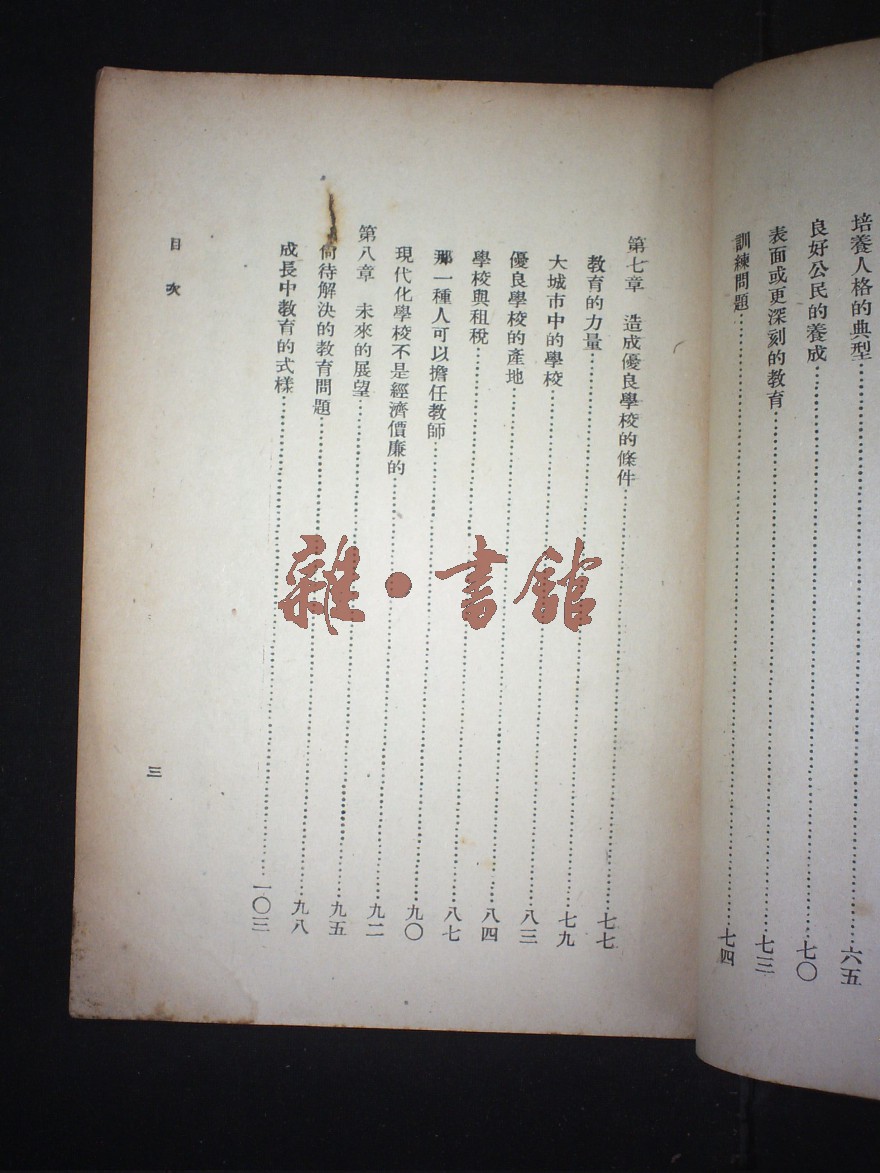 培養人格的典型……六五
良好公民的養成……七〇
表面或更深刻的教育……七三
訓練問題……七四
第七章　造成優良學校的條件……七七
教育的力量……七九
大城市中的學校……八三
優良學校的產地……八四
學校與租稅……八七
那一種人可以擔任教師……九〇
現代化學校不是經濟價廉的……九二
第八章　未來的展望……九五
尚待解決的教育問題……九八
成長中教育的式樣……一〇三
目次
三
雜·書館